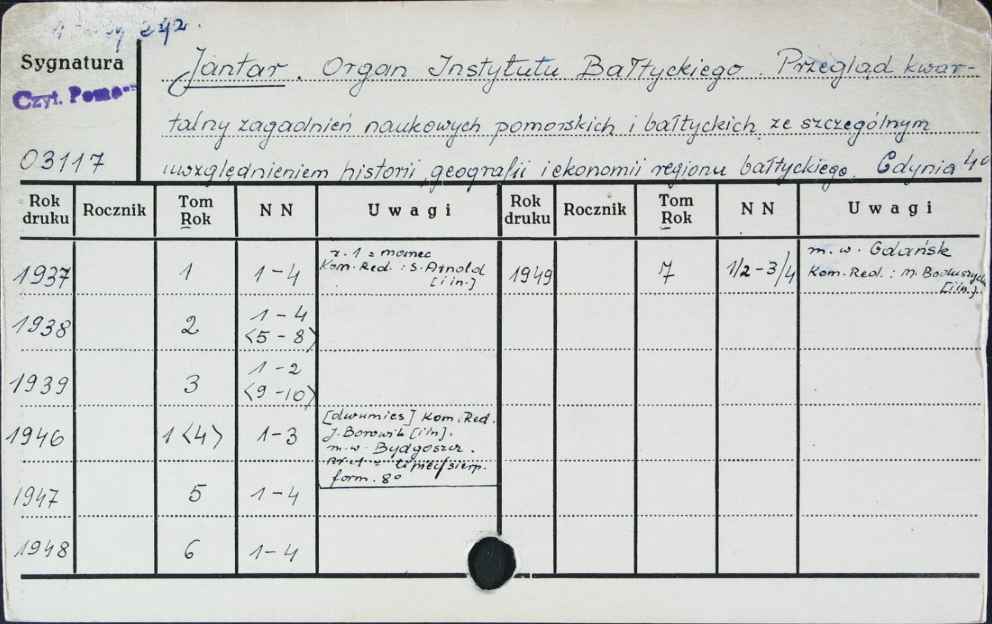 242.
Sygnatura
Czyt. Pomo
03117
Jantar. Organ Instytutu Bałtyckiego. Przegląd kwar-
talny zagadnień naukowych pomorskich i bałtyckich ze szczególnym
uwzględnieniem historii, geografii i ekonomii regionu bałtyckiego. Gdynia 4°
Rok druku Rocznik Tom Rok NN Uwagi Rok druku Rocznik Tom Rok NN Uwagi
1937 1 1-4
z. 1 z marnec
Kom. Red.: S. Arnold
[i in.]
1949 7 1/2-3/4
m. w. Gdańsk
Kom. Red.: M.
[i in.]
1938 2 1-4
<5-8>
1939 3 1-2
<9-10>
1946 1<4> 1-3
[dwumies] Kom. Red.
J. Borowik [i in].
m.w. Bydgoszcz.
nr 1 z lipiec/sierp.
form. 8°
1947 5 1-4
1948 6 1-4